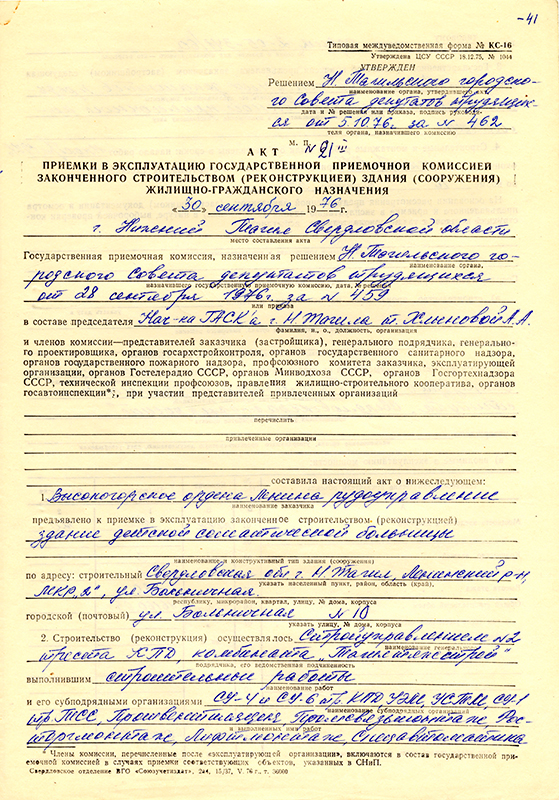 -41
Типовая междуведомственная форма № КС-16
Утверждена ЦСУ СССР 18.12.75, № 1044
УТВЕРЖДЕН
Решением Н Тагильского городско-
наименование органа, утвердившего акт
го Совета депутатов трудящих-
дата и № решения или приказа, подпись руководи-
ся от 5.10.76. за № 462
теля органа, назначившего комиссию
М. П.
АКТ № 21
ПРИЕМКИ В ЭКСПЛУАТАЦИЮ ГОСУДАРСТВЕННОЙ ПРИЕМОЧНОЙ КОМИССИЕЙ
ЗАКОНЧЕННОГО СТРОИТЕЛЬСТВОМ (РЕКОНСТРУКЦИЕЙ) ЗДАНИЯ (СООРУЖЕНИЯ)
ЖИЛИЩНО-ГРАЖДАНСКОГО НАЗНАЧЕНИЯ
«30» сентября 1976 г.
г. Нижний Тагил Свердловской области
место составления акта
Государственная приемочная комиссия, назначенная решением Н Тагильского го-
наименование органа,
родского Совета депутатов трудящихся
назначившего государственную приемочную комиссию, дата, № решения
от 28 сентября 1976г. за № 459
или приказа
в составе председателя Нач-ка ГАСК'а г. Н Тагила т. Хлыновой А.А.
фамилия, и., о., должность, организация
и членов комиссии—представителей заказчика (застройщика), генерального подрядчика, генерально-
го проектировщика, органов госархстройконтроля, органов государственного санитарного надзора,
органов государственного пожарного надзора, профсоюзного комитета заказчика, эксплуатирующей
организации, органов Гостелерадио СССР, органов Минводхоза СССР, органов Госгортехнадзора
СССР, технической инспекции профсоюзов, правления жилищно-строительного кооператива, органов
госавтоинспекции*; при участии представителей привлеченных организаций
перечислить
привлеченные организации
составила настоящий акт о нижеследующем:
1. Высокогорское ордена Ленина рудоуправление
наименование заказчика
предъявлено к приемке в эксплуатацию законченное строительством (реконструкцией)
здание детской соматической больницы
наименование и конструктивный тип здания (сооружения)
по адресу: строительный Свердловская обл г. Н Тагил, Ленинский р-н,
указать населенный пункт, район, область (край),
ул. Больничная.
республику, микрорайон, квартал, улицу, № дома, корпуса
городской (почтовый) ул. Больничная № 10
указать улицу, № дома, корпуса
2. Строительство (реконструкция) осуществлялось Стройуправлением №2
наименование генерального
треста КПД, комбината „Тагилтяжстрой"
подрядчика, его ведомственная подчиненность
выполнившим строительные работы
наименование работ
и его субподрядными организациями СУ-4 и СУ-6 КПД УЭМ, УСТМ, СУ-1
наименование субподрядных организаций
тр. ТСС, Промвентиляция, Промсвязьмонтаж, Рос-
и выполненных ими работ
торгмонтаж, Лифтмонтаж, Спецавтоматика
* Члены комиссии, перечисленные после «эксплуатирующей организации», включаются в состав государственной при-
емочной комиссией в случаях приемки соответствующих объектов, указанных в СНиП.
Свердловское отделение ВГО «Союзучетиздат», 244, 15/37, V. 76 г., т. 50000